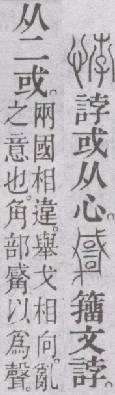 悖誖或从心。𢨋籒文誖。
从二或。
兩國相違。舉戈相向。亂
之意也。角部以為聲。